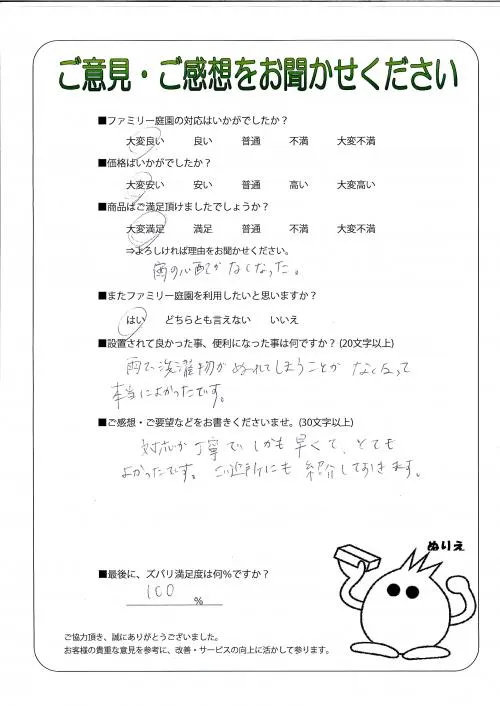 ご意見・ご感想をお聞かせください
■ファミリー庭園の対応はいかがでしたか？
大変良い 良い 普通 不満 大変不満
■価格はいかがでしたか？
大変安い 安い 普通 高い 大変高い
■商品はご満足頂けましたでしょうか？
大変満足 満足 普通 不満 大変不満
⇒よろしければ理由をお聞かせください。
雨の心配がなくなった。
■またファミリー庭園を利用したいと思いますか？
はい どちらとも言えない いいえ
■設置されて良かった事、便利になった事は何ですか？(20文字以上)
雨で洗濯物がぬれてしまうことがなくなって
本当によかったです。
■ご感想・ご要望などをお書きくださいませ。(30文字以上)
対応が丁寧でしかも早くて、とても
よかったです。ご近所にも紹介しておきます。
ぬりえ
■最後に、ズバリ満足度は何％ですか？
100
％
ご協力頂き、誠にありがとうございました。
お客様の貴重な意見を参考に、改善・サービスの向上に活かして参ります。